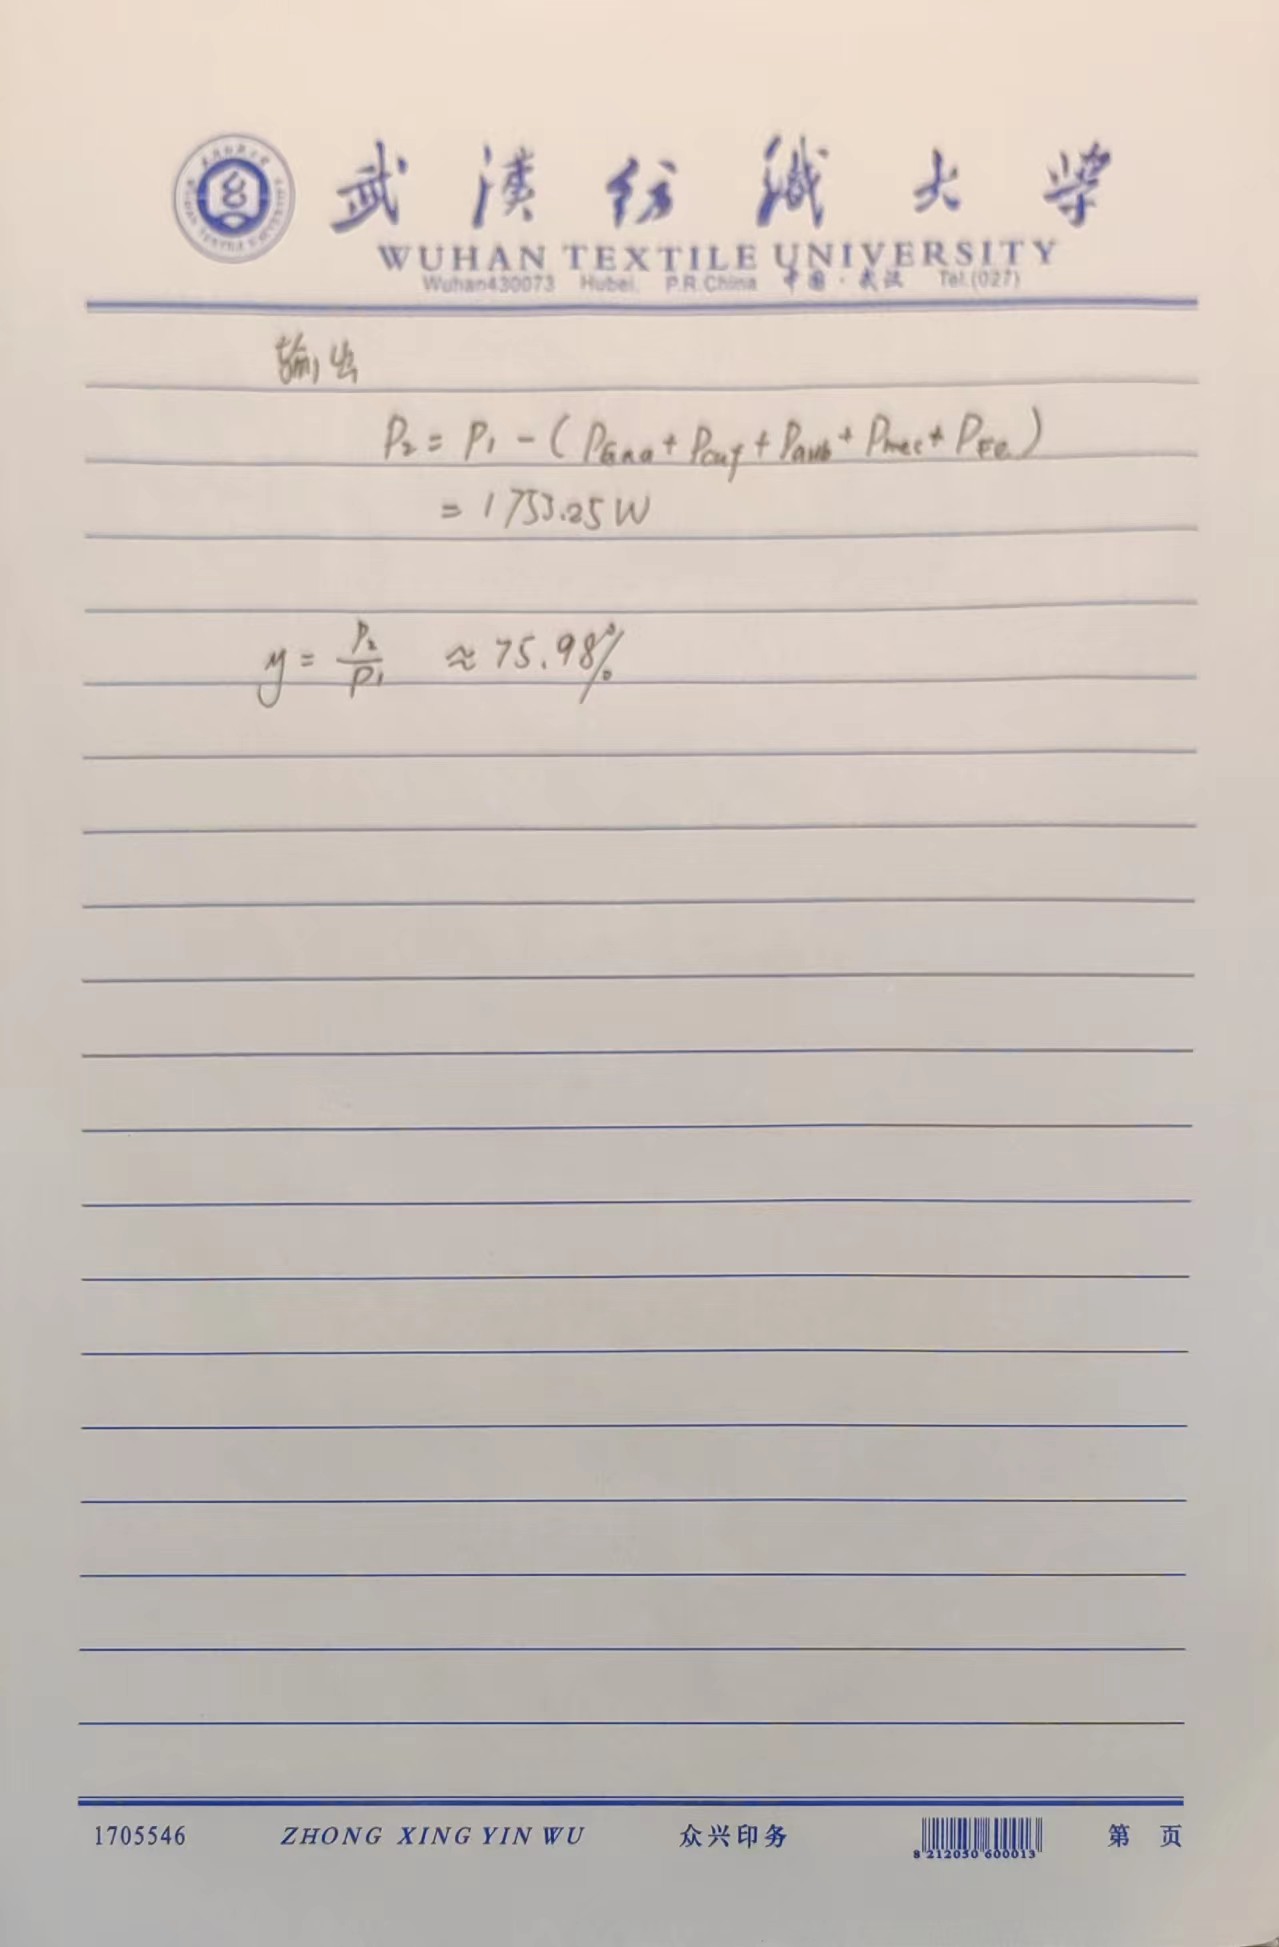 武漢紡織大學
WUHAN TEXTILE UNIVERSITY
Wuhan430073 Hubei. P.R.China 中国·武汉 Tel.(027)
输出
P₂ = P₁ - (PGna + Pcuf + Pamb + Pmec + PFe)
= 1753.25W
η = P₂/P₁ ≈ 75.98%
1705546 ZHONG XING YIN WU 众兴印务 8 212050 600013 第 页